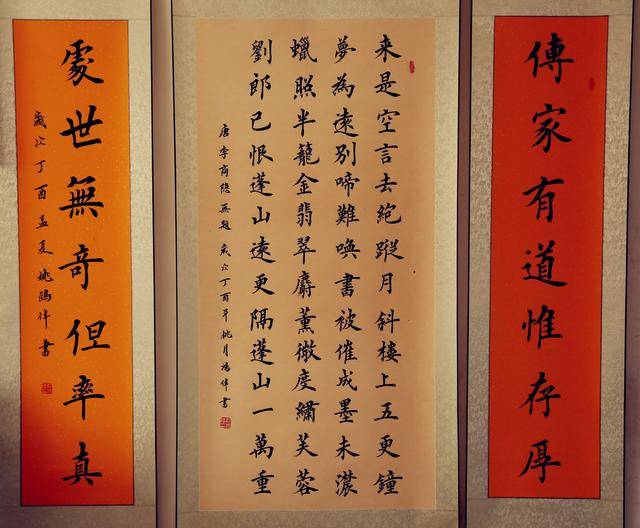 傳家有道惟存厚
来是空言去絕蹤月斜樓上五更鐘
夢為遠別啼難喚書被催成墨未濃
蠟照半籠金翡翠麝薰微度繡芙蓉
劉郎已恨蓬山遠更隔蓬山一萬重
唐李商隐无題歲次丁酉年桃月鴻偉書
處世無奇但率真
歲次丁酉孟夏姚鴻偉書